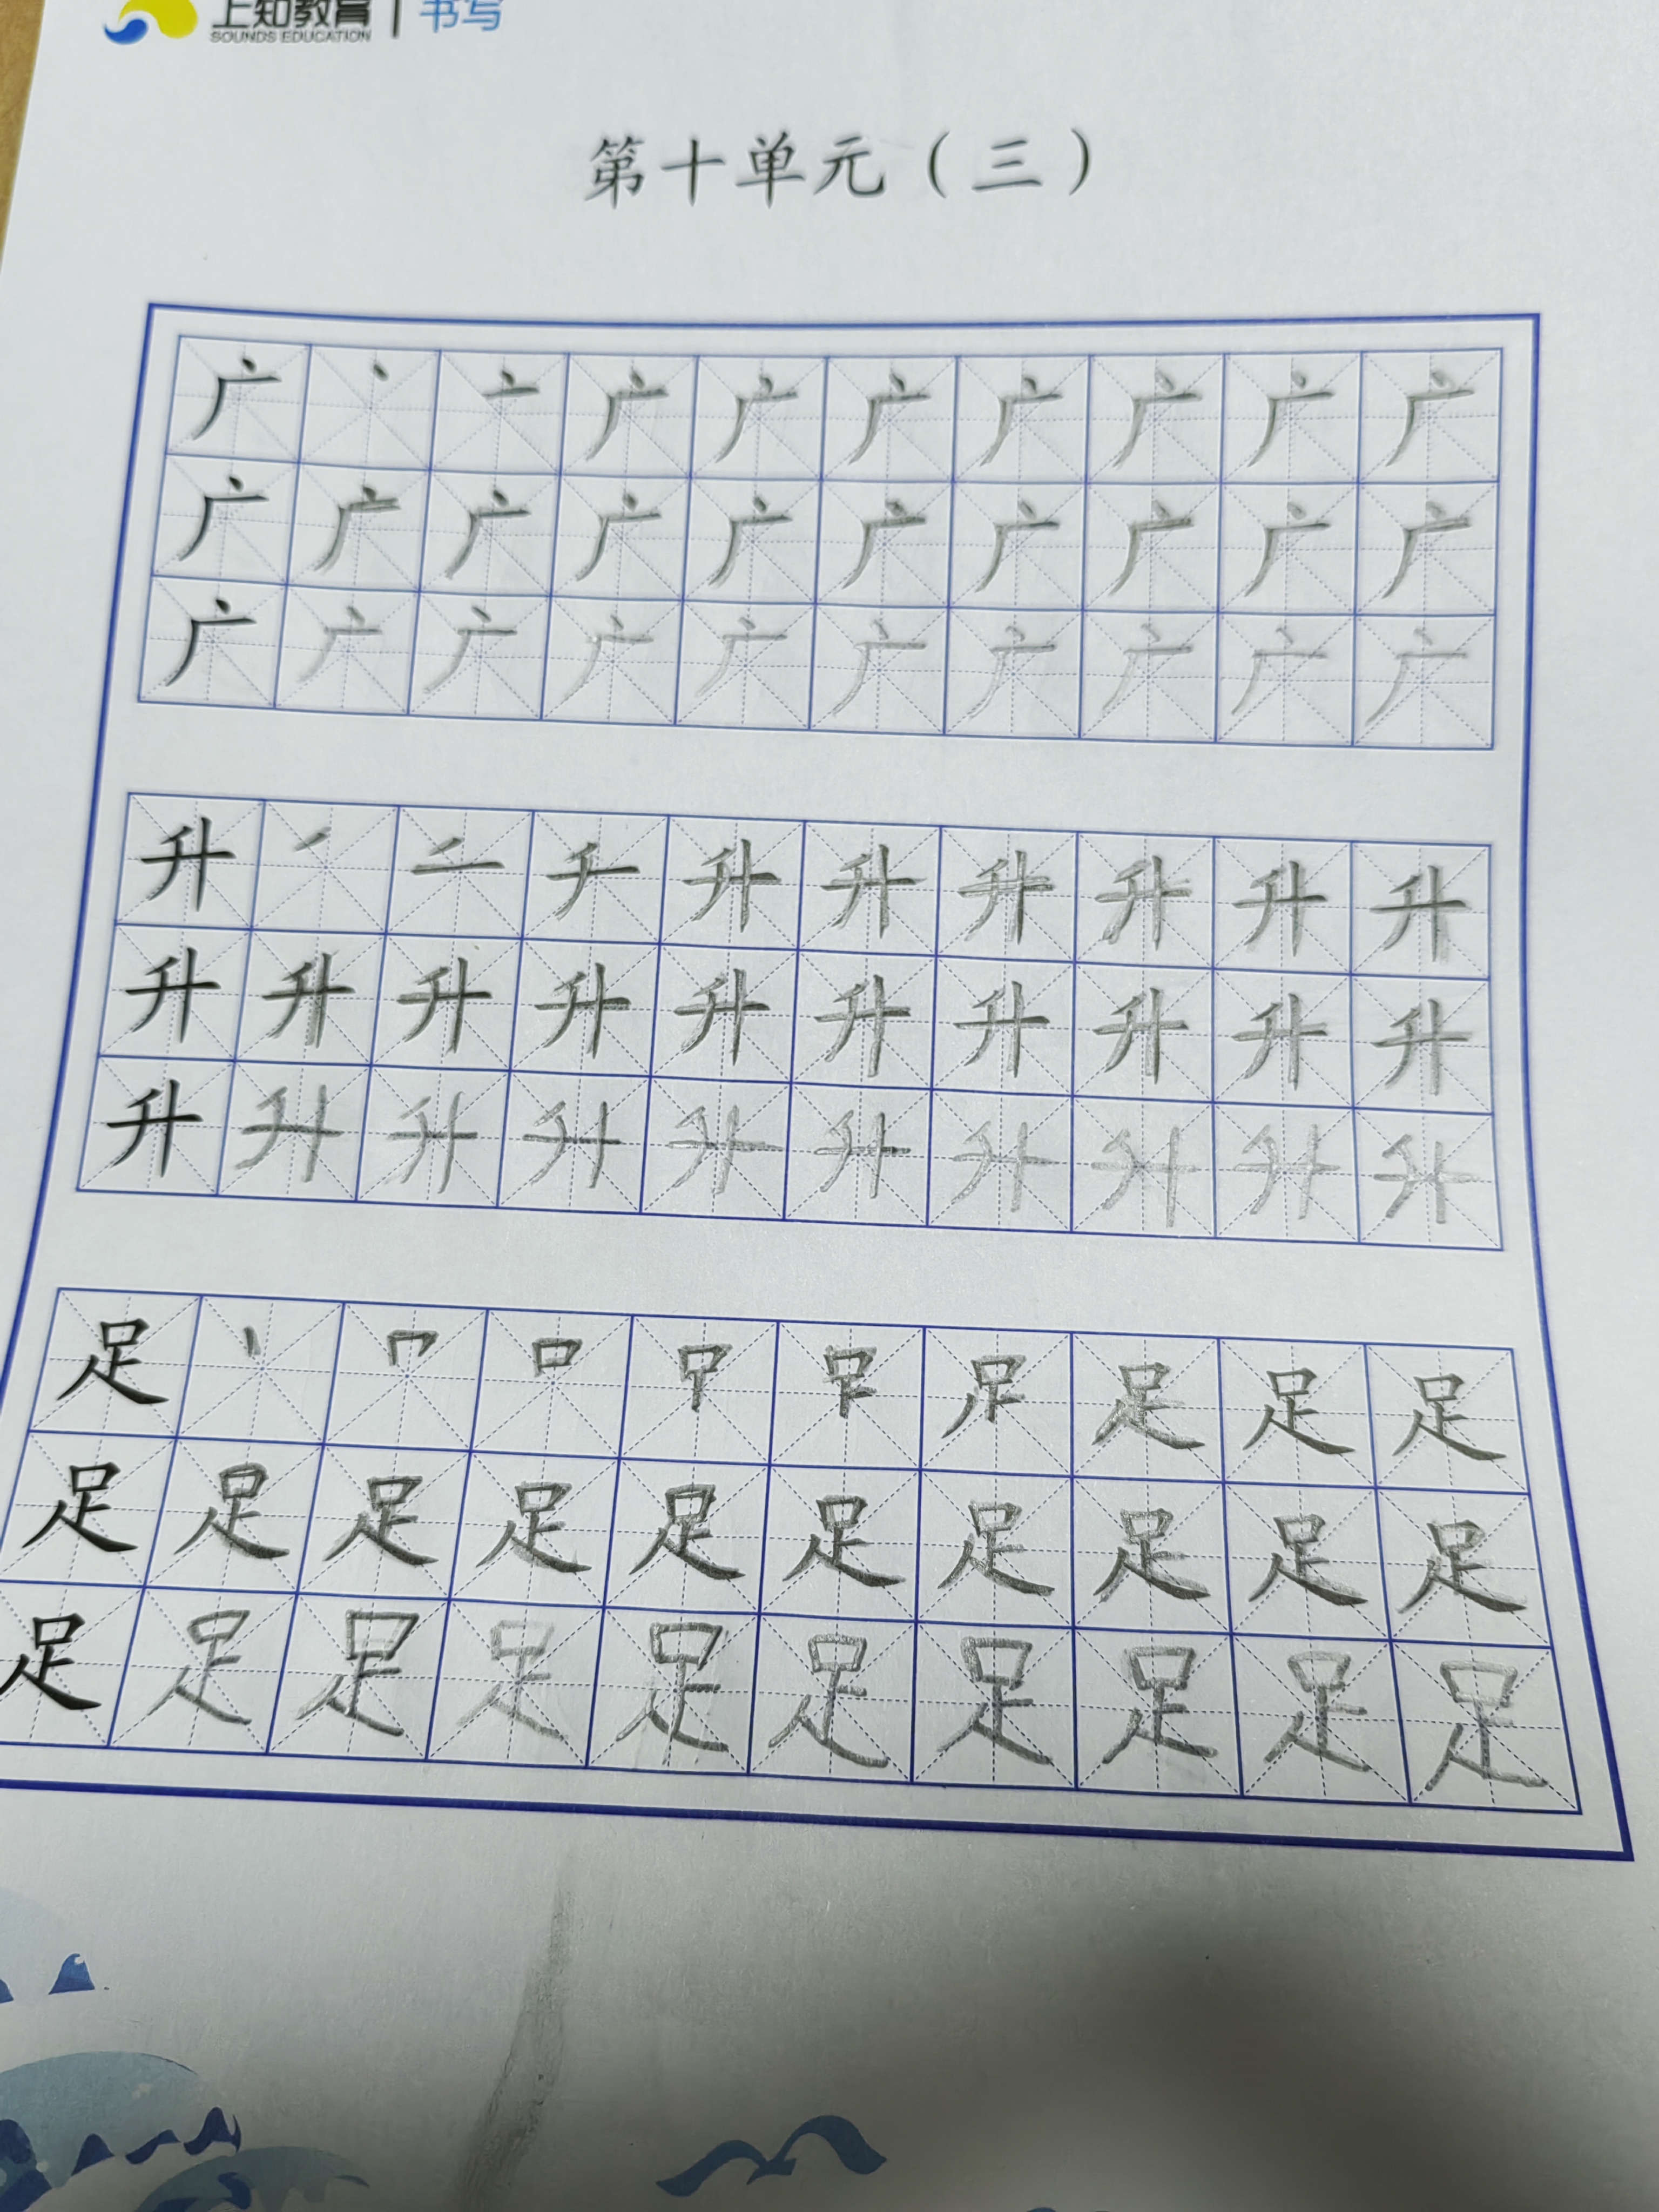 上知教育 | 书写
SOUNDS EDUCATION
第十单元（三）
广 丶 亠 广 广 广 广 广 广 广
广 广 广 广 广 广 广 广 广 广
广 广 广 广 广 广 广 广 广 广
升 丿 升 升 升 升 升 升 升
升 升 升 升 升 升 升 升 升 升
升 升 升 升 升 升 升 升 升 升
足 丨 口 足 足 足
足 足 足 足 足 足 足 足 足 足
足 足 足 足 足 足 足 足 足 足